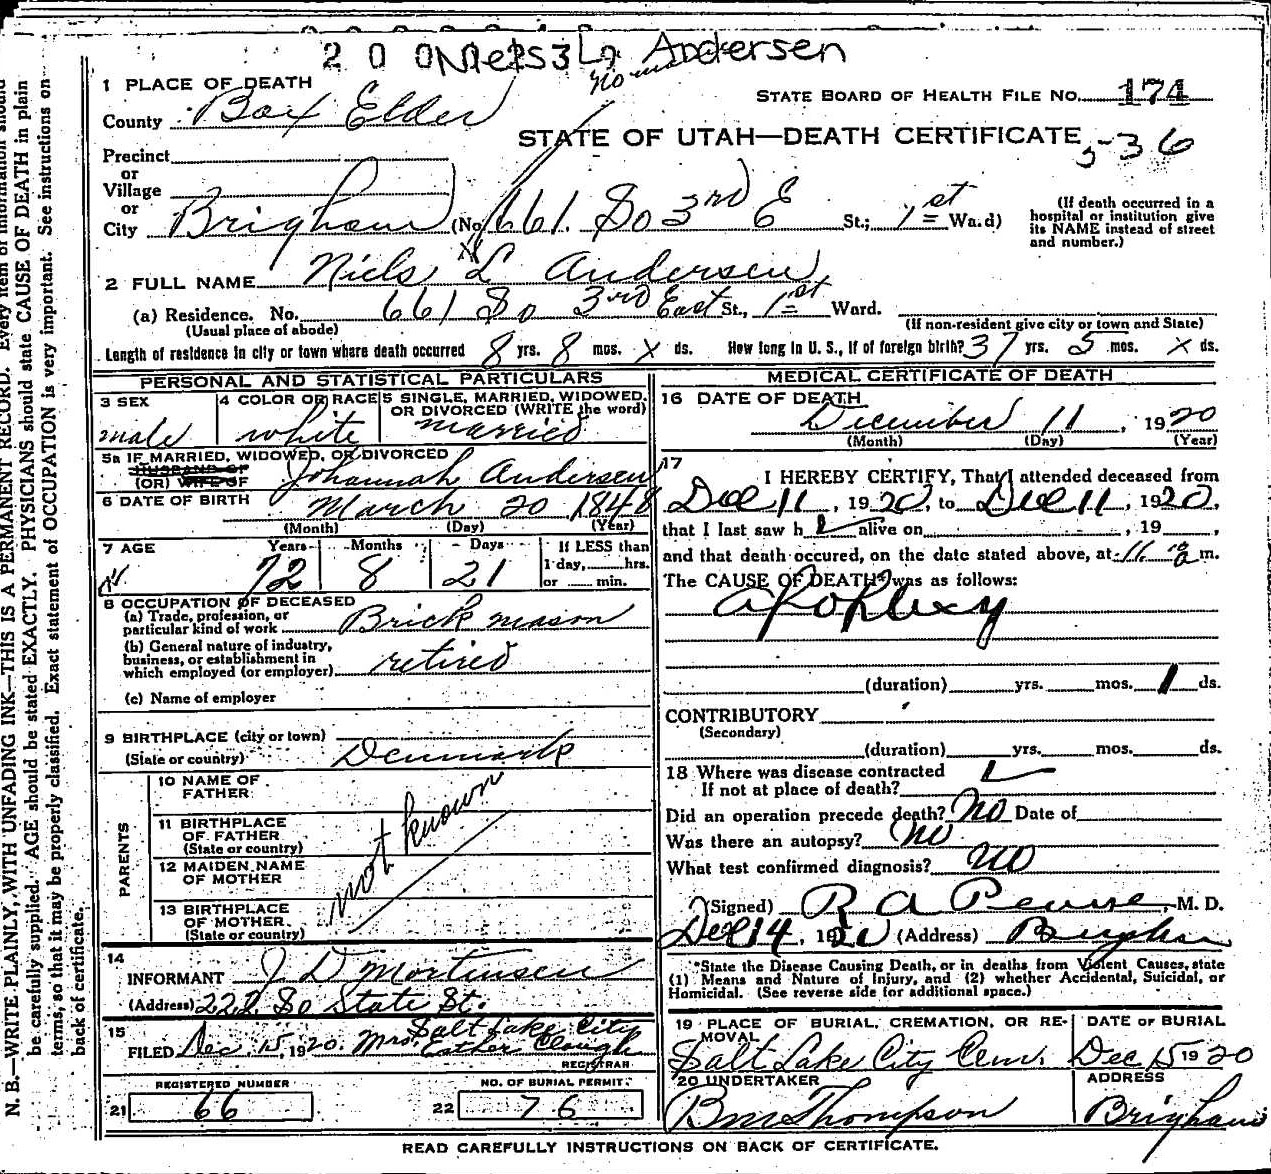 Niels L Andersen
1 PLACE OF DEATH
County Box Elder
STATE BOARD OF HEALTH FILE NO. 174
STATE OF UTAH—DEATH CERTIFICATE
536
Precinct
or
Village
or
City Brigham (No. 661. So 3rd E St.; 1st Ward)
(If death occurred in a
hospital or institution give
its NAME instead of street
and number.)
2 FULL NAME Niels L Andersen
(a) Residence. No. 661 So 3rd East St., 1st Ward.
(Usual place of abode)
(If non-resident give city or town and State)
Length of residence in city or town where death occurred 8 yrs. 8 mos. x ds. How long in U. S., if of foreign birth? 37 yrs. 5 mos. x ds.
PERSONAL AND STATISTICAL PARTICULARS
3 SEX male
4 COLOR OR RACE white
5 SINGLE, MARRIED, WIDOWED,
OR DIVORCED (WRITE the word)
married
5a IF MARRIED, WIDOWED, OR DIVORCED
HUSBAND OF
(OR) WIFE OF Johannah Andersen
6 DATE OF BIRTH March 20 1848
(Month) (Day) (Year)
7 AGE Years Months Days If LESS than
1 day, hrs.
or min.
72 8 21
8 OCCUPATION OF DECEASED
(a) Trade, profession, or
particular kind of work Brick mason
(b) General nature of industry,
business, or establishment in
which employed (or employer) retired
(c) Name of employer
9 BIRTHPLACE (city or town)
(State or country) Denmark
PARENTS
10 NAME OF
FATHER
11 BIRTHPLACE
OF FATHER
(State or country)
12 MAIDEN NAME
OF MOTHER
13 BIRTHPLACE
OF MOTHER
(State or country)
not known
14
INFORMANT J D Mortinsen
(Address) 222 So State St.
Salt Lake City
15
FILED Dec. 15, 1920. Mrs. Esther Clough
REGISTRAR
REGISTERED NUMBER
21 66
NO. OF BURIAL PERMIT
22 76
MEDICAL CERTIFICATE OF DEATH
16 DATE OF DEATH
December 11, 1920
(Month) (Day) (Year)
17
I HEREBY CERTIFY, That I attended deceased from
Dec 11, 1920, to Dec 11, 1920,
that I last saw h alive on , 19 ,
and that death occured, on the date stated above, at 11 m.
The CAUSE OF DEATH* was as follows:
apoplexy
(duration) yrs. mos. 1 ds.
CONTRIBUTORY
(Secondary)
(duration) yrs. mos. ds.
18 Where was disease contracted
If not at place of death?
Did an operation precede death? no Date of
Was there an autopsy? no
What test confirmed diagnosis? no
(Signed) R A Pearse, M. D.
Dec 14, 1920 (Address) Brigham
*State the Disease Causing Death, or in deaths from Violent Causes, state
(1) Means and Nature of Injury, and (2) whether Accidental, Suicidal, or
Homicidal. (See reverse side for additional space.)
19 PLACE OF BURIAL, CREMATION, OR RE-
MOVAL
Salt Lake City Cem.
DATE OF BURIAL
Dec 15 1920
20 UNDERTAKER
Bm Thompson
ADDRESS
Brigham
READ CAREFULLY INSTRUCTIONS ON BACK OF CERTIFICATE.
N. B.—WRITE PLAINLY, WITH UNFADING INK—THIS IS A PERMANENT RECORD. Every item of information should
be carefully supplied. AGE should be stated EXACTLY. PHYSICIANS should state CAUSE OF DEATH in plain
terms, so that it may be properly classified. Exact statement of OCCUPATION is very important. See instructions on
back of certificate.